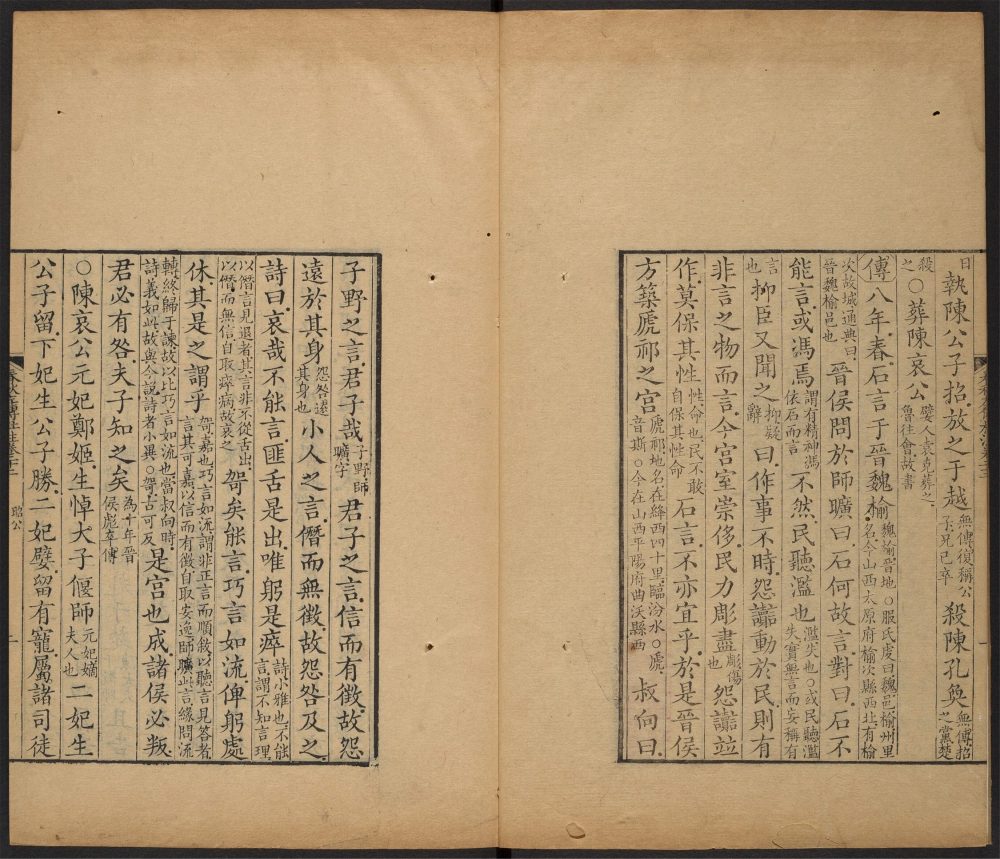 日執陳公子招放之于越無傳復稱公子兄已卒殺陳孔奐無傳招之黨楚
殺之○葬陳哀公嬖人袁克葬之魯往會故書
傳八年春石言于晉魏榆魏榆晉地○服氏虔曰魏邑榆州里名今山西太原府榆次縣西北有榆
次故城通典曰晉魏榆邑也晉侯問於師曠曰石何故言對曰石不
能言或馮焉謂有精神馮依石而言不然民聽濫也濫失也○或民聽濫失實無言而妄稱有
言也抑臣又聞之抑疑辭曰作事不時怨讟動於民則有
非言之物而言今宮室崇侈民力彫盡彫傷也怨讟並
作莫保其性性命也民不敢自保其性命石言不亦宜乎於是晉侯
方築虒祁之宮虒祁地名在絳西四十里臨汾水○虒音斯○今在山西平陽府曲沃縣西叔向曰
子野之言君子哉子野師曠字君子之言信而有徵故怨
遠於其身怨咎遠其身也小人之言僭而無徵故怨咎及之
詩曰哀哉不能言匪舌是出唯躬是瘁詩小雅也不能言謂不知言理
以僭言見退者其言非不從舌出以僭而無信自取瘁病故哀之哿矣能言巧言如流俾躬處
休其是之謂乎哿嘉也巧言如流謂非正言而順敘以聽言見答者言其可嘉以信而有徵自取安逸師曠此言緣問流
轉終歸于諫故以比巧言如流也當叔向時詩義如此故與今說詩者小異○哿古可反是宮也成諸侯必叛
君必有咎夫子知之矣為十年晉侯彪卒傳
○陳哀公元妃鄭姬生悼大子偃師元妃嫡夫人也二妃生
公子留下妃生公子勝二妃嬖留有寵屬諸司徒
昭公
一